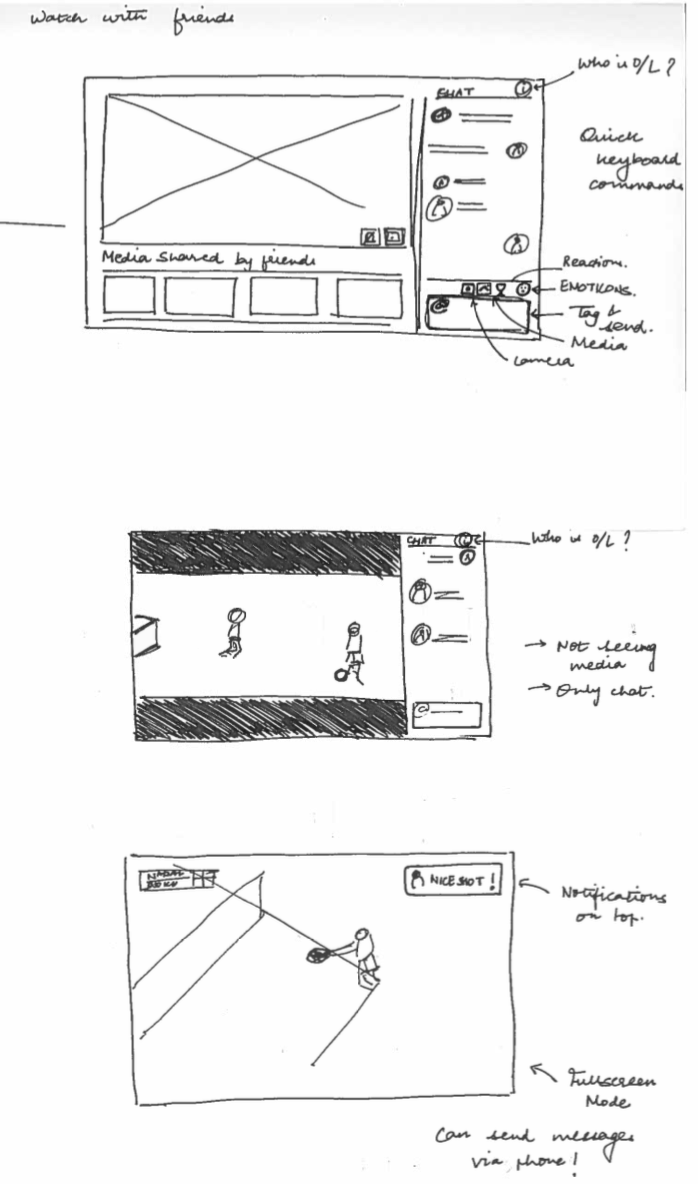 Watch with friends
Who is O/L?
CHAT
Quick
keyboard
commands
Media shared by friends
Reactions.
EMOTICONS.
Tag &
send.
Media
Camera
CHAT
Who is O/L?
→ Not seeing
media
→ Only chat.
NADAL
NICE SHOT!
Notifications
on top.
Fullscreen
Mode
Can send messages
via phone!